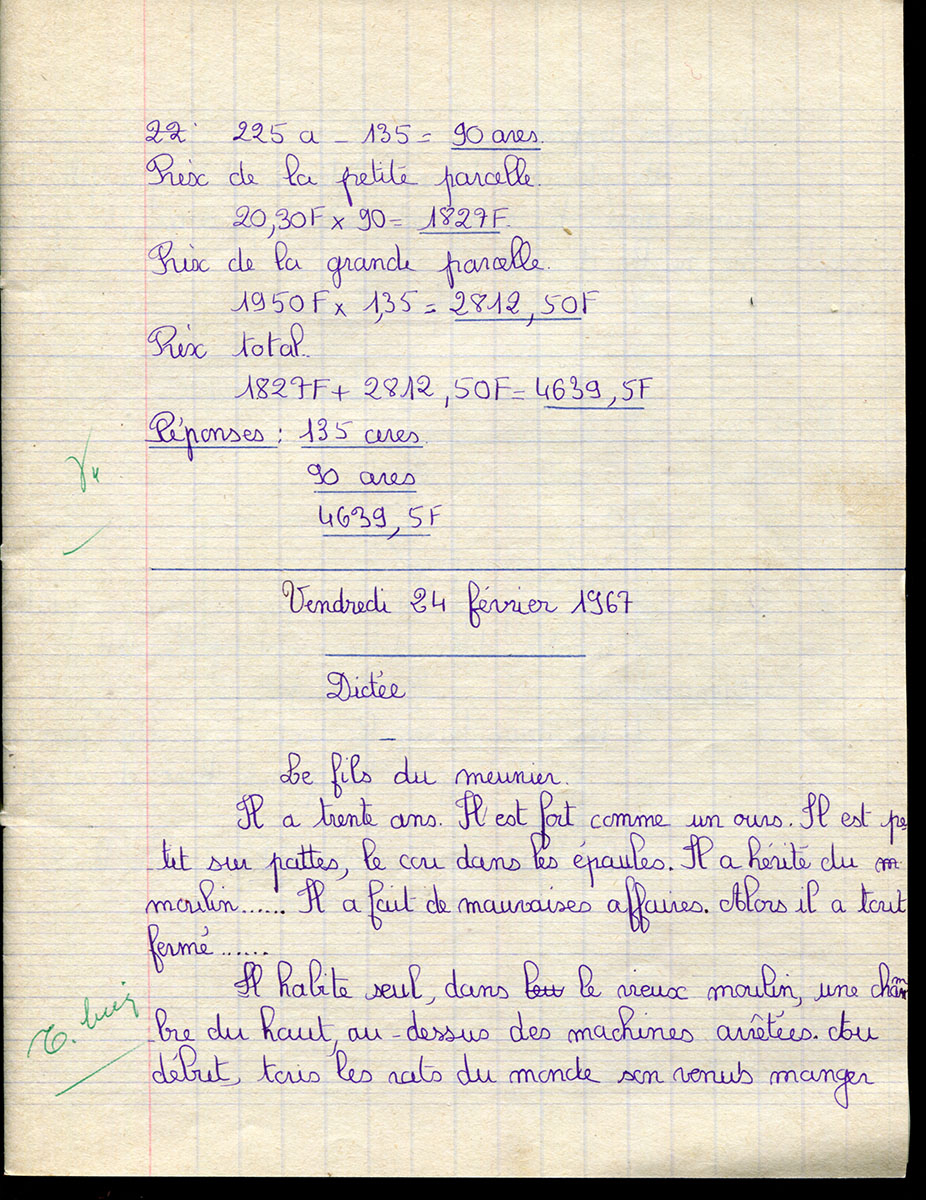 22. 225 a - 135 = 90 ares.
Prix de la petite parcelle.
20,30F x 90 = 1827F.
Prix de la grande parcelle.
1950F x 1,35 = 2812,50F
Prix total.
1827F + 2812,50F = 4639,5F
Réponses : 135 ares.
90 ares
4639,5F
Vu
Vendredi 24 février 1967
Dictée
Le fils du meunier.
Il a trente ans. Il est fort comme un ours. Il est pe-
tit sur pattes, le cou dans les épaules. Il a hérité du m
moulin...... Il a fait de mauvaises affaires. Alors il a tout
fermé......
Il habite seul, dans le vieux moulin, une cham
bre du haut, au-dessus des machines arrêtées. Au
T. bien
début, tous les rats du monde son venus manger